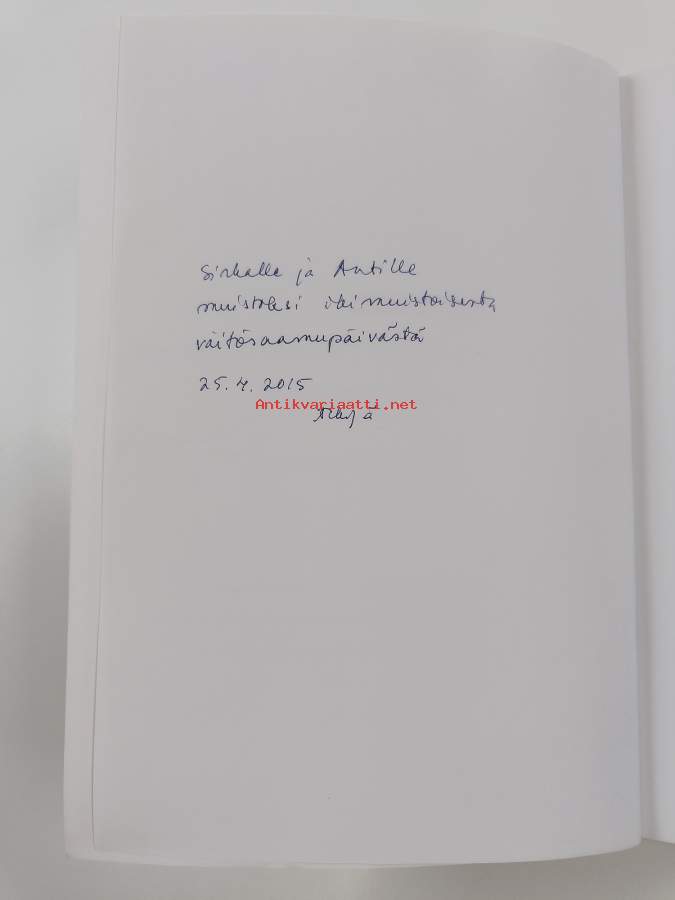 Sirkalle ja Antille
muistoksi ikimuistoisesta
väitösaamupäivästä
25.4.2015
Antikvariaatti.net